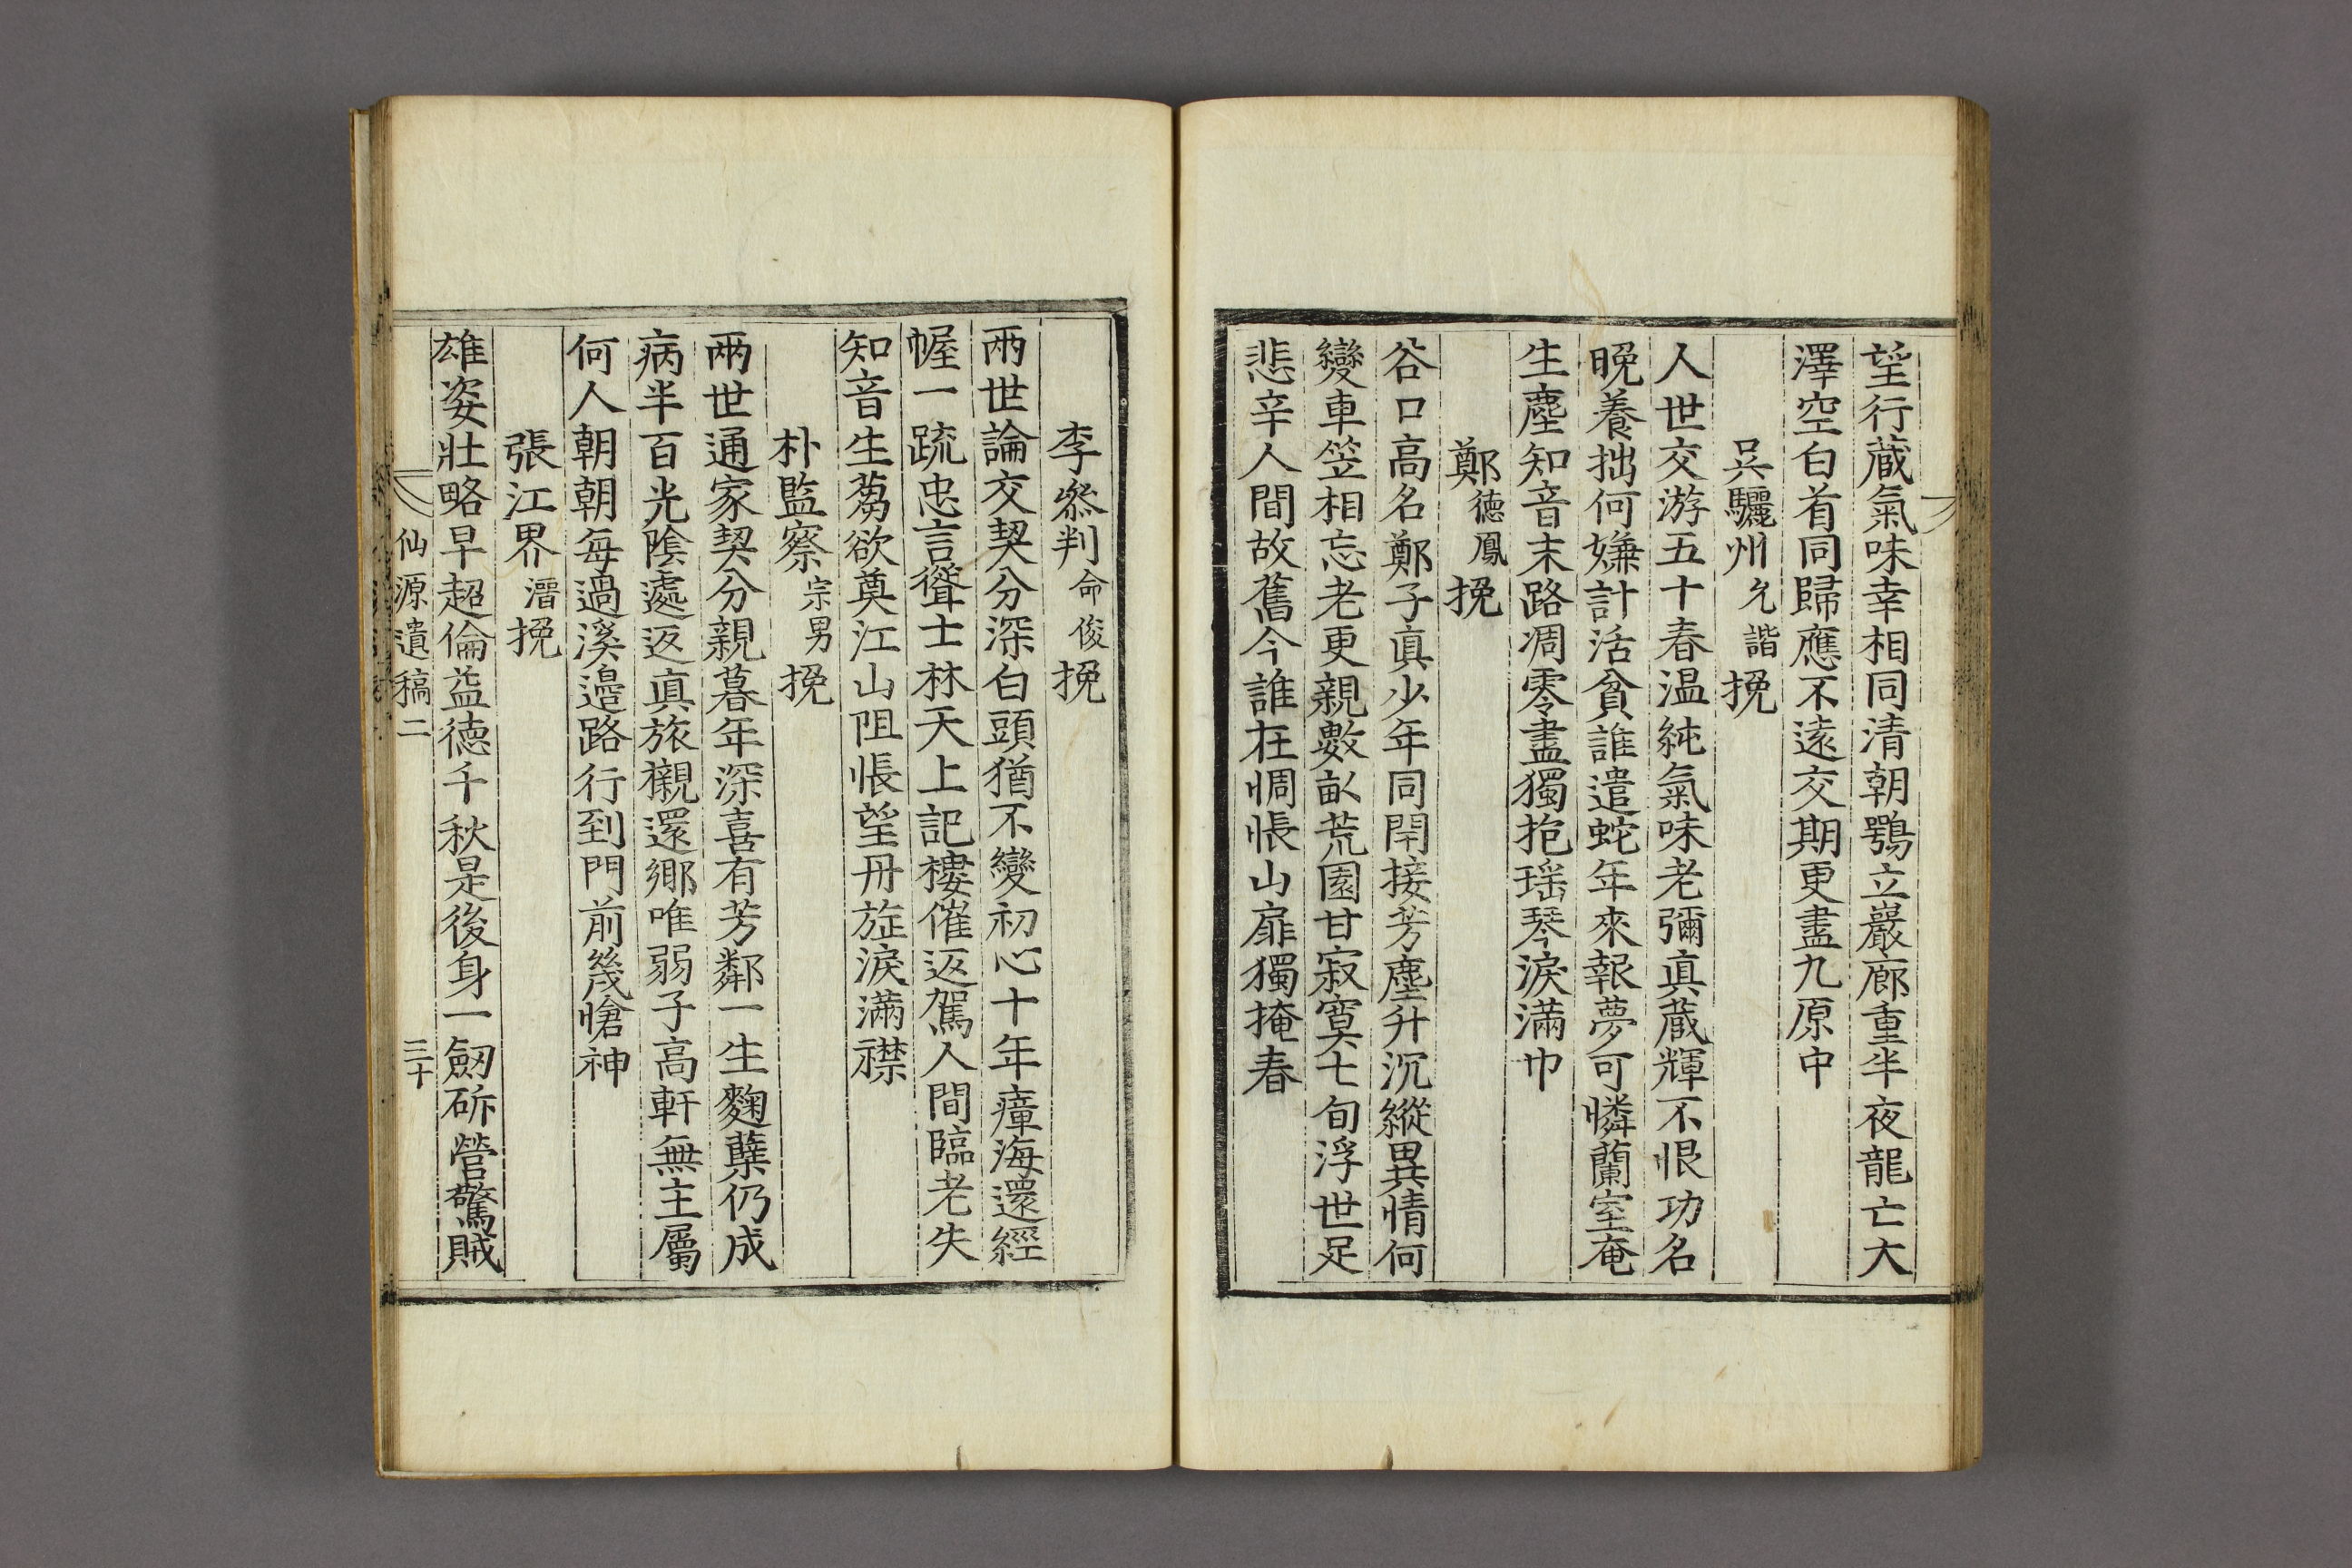 望行蔵氣味幸相同清朝鶚立巖廊重半夜龍亡大
澤空白首同歸應不遠交期更盡九原中
吳驪州允諧挽
人世交游五十春温純氣味老彌真蔵輝不恨功名
晩養拙何嫌計活貧誰遣蛇年來報夢可憐蘭室奄
生塵知音末路凋零盡獨抱瑶琴淚滿巾
鄭德鳳挽
谷口高名鄭子眞少年同閈接芳塵升沉縱異情何
變車笠相忘老更親數畝荒園甘寂寞七旬浮世足
悲辛人間故舊今誰在惆悵山扉獨掩春
李叅判命俊挽
兩世論交契分深白頭猶不變初心十年瘴海還經
幄一疏忠言聳士林天上記樓催返駕人間臨老失
知音生蒭欲奠江山阻悵望丹旌淚滿襟
朴監察宗男挽
兩世通家契分親暮年深喜有芳鄰一生麴蘖仍成
病半百光陰遽返眞旅櫬還鄉唯弱子高軒無主屬
何人朝朝每過溪邉路行到門前幾愴神
張江界㵛挽
雄姿壯略早超倫益德千秋是後身一劒斫營驚賊
仙源遺稿二 三十